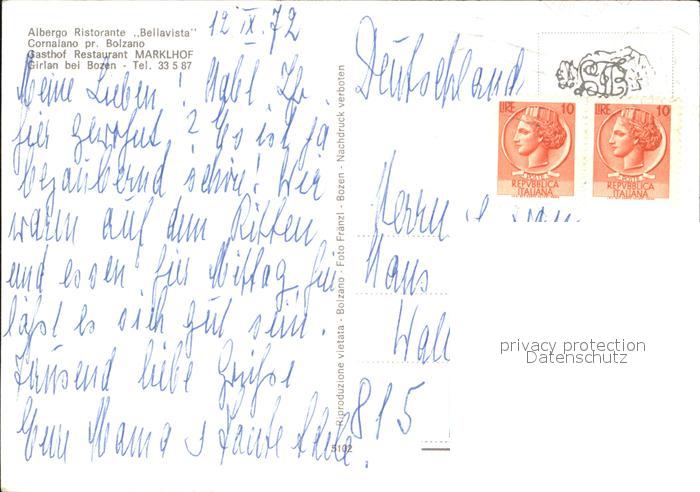 Albergo Ristorante „Bellavista"
Cornaiano pr. Bolzano
Gasthof Restaurant MARKLHOF
Girlan bei Bozen - Tel. 33 5 87
12 IX. 72
Meine Lieben! Habt Ihr
hier gewohnt? Es ist ja
bezaubernd schön! Wir
waren auf dem Ritten
und essen hier Mittag, hier
läßt es sich gut sein.
Tausend liebe Grüße
Eure Mama u Tante
Riproduzione vietata - Bolzano - Foto Fränzl - Bozen - Nachdruck verboten
5102
Deutschland
LIRE 10
POSTE
REPVBBLICA
ITALIANA
LIRE 10
POSTE
REPVBBLICA
ITALIANA
Herrn
Hans
Wall
815
privacy protection
Datenschutz